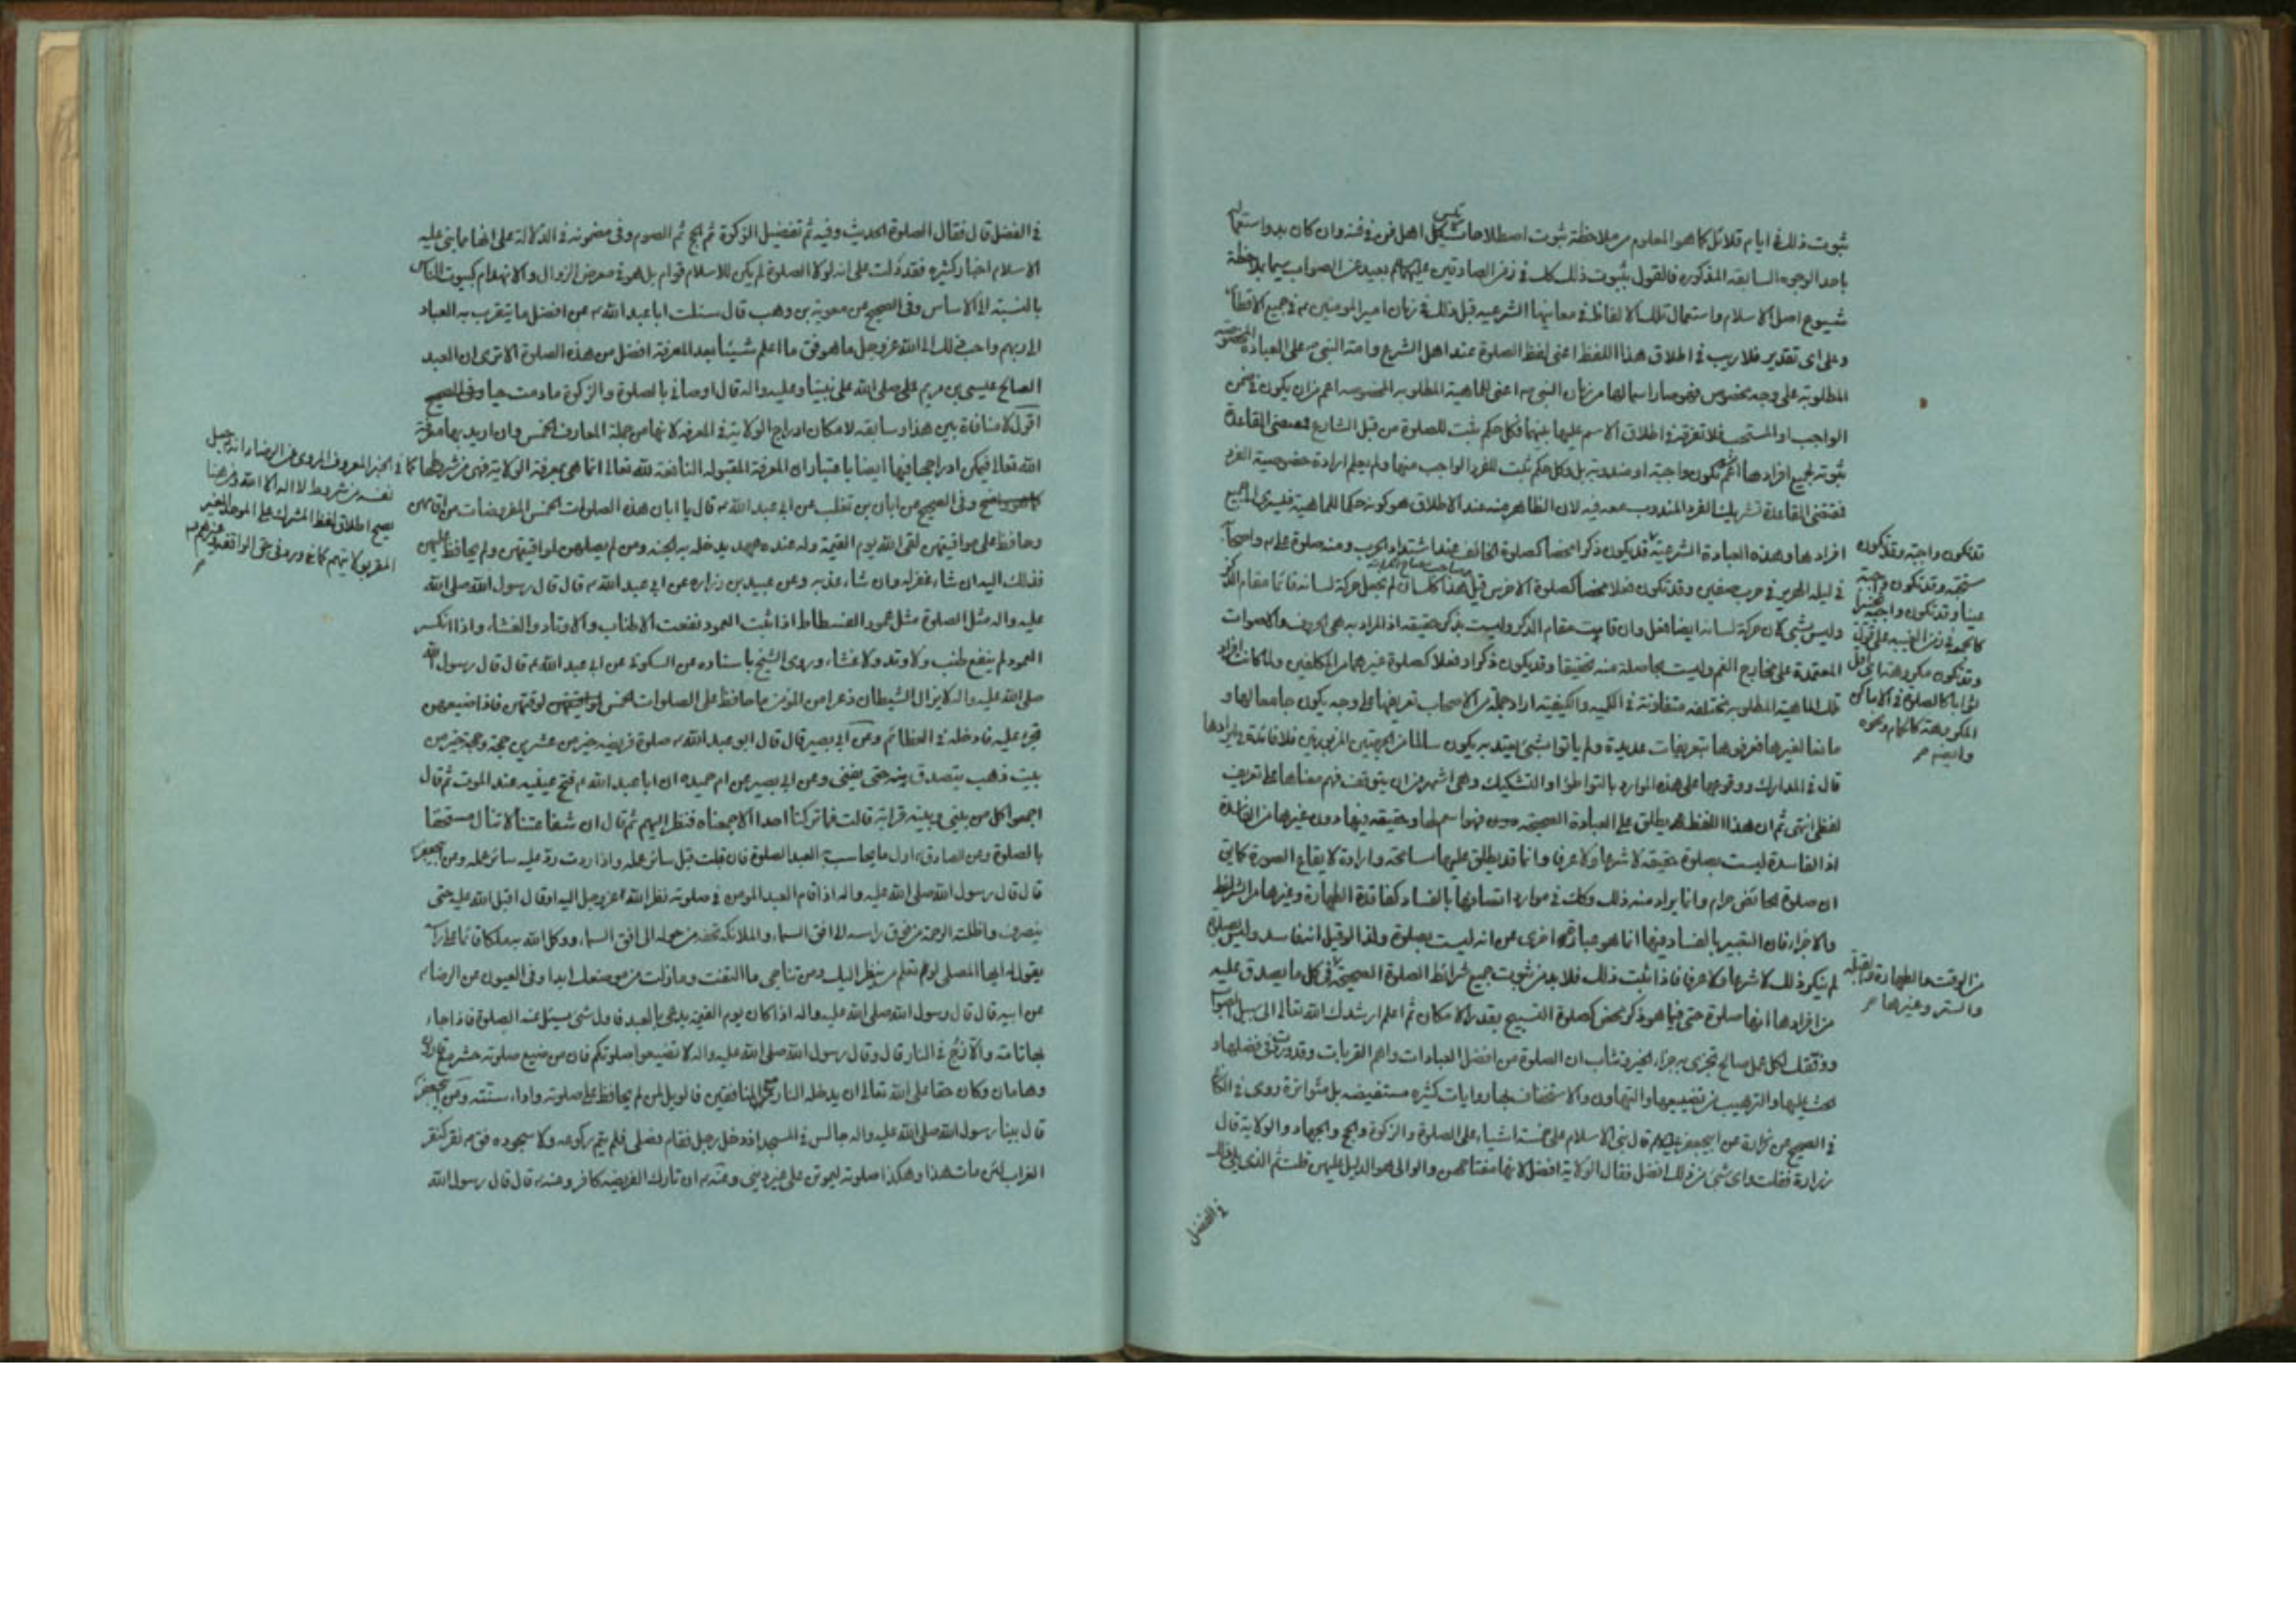 ثبوت ذلك في ايام قلائل كما هو المعلوم من ملاحظة ثبوت اصطلاحات كل اهل فن في فنه وان كان بدو استعماله
باحد الوجوه السابقة المذكوره فالقول بثبوت ذلك كله في زمن الصادقين عليهما السلم بعيد عن الصواب سيما بملاحظة
شيوع اصل الاسلام واستعمال تلك الالفاظ في معانيها الشرعيه قبل ذلك في زمان امير المومنين ع في جميع الاقطار
وعلى اى تقدير فلا ريب في اطلاق هذا اللفظ اعنى لفظ الصلوة عند اهل الشرع وامة النبي ص على العبادة المخصوصة
المطلوبة على وجه مخصوص فهو صار اسما لها من زمان النبي ص اعنى للماهية المطلوبه المخصوصه اعم من ان يكون في ضمن
الواجب او المستحب فلا تفرقة في اطلاق الاسم عليها بينهما فكل حكم ثبت للصلوة من قبل الشارع فمقتضى القاعدة
ثبوته لجميع افرادها اعم من ان تكون واجبة او مندوبة بل وكل حكم ثبت للفرد الواجب منها ولم يعلم ارادة خصوصية الفرد
فمقتضى القاعدة تشريك الفرد المندوب معه فيه لان الظاهر منه عند الاطلاق هو كونه حكما للماهية فيسرى الى جميع
افرادها وهذه العبادة الشرعية قد يكون ذكرا محضا كصلوة الخائف عند اشتداد الحرب ومنه صلوة على ع واصحابه
في ليلة الهرير في حرب صفين وقد تكون فعلا محضا كصلوة الاخرس قيل هذا كلساق لم يجعل حركة لسانه قائما مقام الذكر
وليس بشئ لان حركة لسانه ايضا فعل وان قامت مقام الذكر وليست بذكر حقيقة اذ المراد به هى الحروف والاصوات
المعتمدة على مخارج الفم وليست بحاصلة منه تحقيقا وقد يكون ذكرا وفعلا كصلوة غيرهما من المكلفين ولما كانت افراد
تلك الماهية المطلوبه مختلفه متفاوتة في الكميه والكيفيته اراد جملة من الاصحاب تعريفها على وجه يكون جامعا لها و
مانعا لغيرها فعرفوها بتعريفات عديدة ولم ياتوا بشئ يعتد به يكون سالما من الجهتين المزبورتين فلا فائدة في ايرادها
قال في المدارك ووقوعها على هذه الموارد بالتواطؤ او التشكيك وهى اشهر من ان يتوقف فهم معناها على تعريف
لفظى انتهى ثم ان هذا اللفظ يطلق على العبادة الصحيحة فهو اسم لها وحقيقه فيها دون غيرها من الفاسدة
اذ الفاسدة ليست بصلوة حقيقة لا شرعا ولا عرفا وانما قد يطلق عليها مسامحة وارادة لايقاع الصورة كما في
ان صلوة الحائض حرام وانما يراد منه ذلك وكذا في موارد اتصافها بالفساد كفاقدة الطهارة وغيرها من الشرايط
والاجزاء فان التعبير بالفساد فيها انما هو عبارة اخرى عن انه ليست بصلوة ولذا لو قيل انه فاسد وليس بصلوة
لم ينكر ذلك لا شرعا ولا عرفا فاذا ثبت ذلك فلا بد من ثبوت جميع شرائط الصلوة الصحيحة في كل ما يصدق عليه
من افرادها انها صلوة حتى فيما هو ذكر محض كصلوة التسبيح بقدر الامكان ثم اعلم ارشدك الله تعالى الى سبيل الصواب
ووفقك لكل عمل صالح تجزى به جزاء الخير وتثاب ان الصلوة من افضل العبادات واهم القربات وقد ورد في فضلها و
الحث عليها والترهيب من تضييعها والتهاون والاستخفاف بها روايات كثيره مستفيضه بل متواترة روى في الكافى
في الصحيح عن زرارة عن ابيجعفر عليه السلم قال بنى الاسلام على خمسة اشياء على الصلوة والزكوة والحج والجهاد والولاية قال
زرارة فقلت واى شئ من ذلك افضل فقال الولاية افضل لانها مفتاحهن والوالى هو الدليل عليهن قلت ثم الذى يلى ذلك
في الفضل
قد تكون واجبة وقد تكون
مستحبة وقد تكون واجبة
عينا وقد تكون واجبة تخييرا
كالجمعة في زمن الغيبه على قول
وقد تكون مكروهة اى اقل
ثوابا كالصلوة في الاماكن
المكروهة كالحمام ونحوه
وايضه
من الوقت والطهارة والقبلة
والستر وغيرها
في الفضل قال فقال الصلوة الحديث وفيه ثم تفضيل الزكوة ثم الحج ثم الصوم وفى مضمونه في الدلالة على انها مما بنى عليه
الاسلام اخبار كثيره فقد دلت على انه لولا الصلوة لم يكن للاسلام قوام بل هو في معرض الزوال والانهدام كبيوت الناس
بالنسبة الى الاساس وفى الصحيح عن معوية بن وهب قال سئلت ابا عبد الله ع عن افضل ما يتقرب به العباد
الى ربهم واحب ذلك الى الله عز وجل ما هو فق ما اعلم شيئا بعد المعرفة افضل من هذه الصلوة الا ترى ان العبد
الصالح عيسى بن مريم على صلى الله على نبينا وعليه واله قال اوصانى بالصلوة والزكوة ما دمت حيا
اقول لا منافاة بين هذا وسابقه لامكان ادراج الولاية في المعرفه لانها من جملة المعارف الخمس وان اريد بها معرفة
الله تعالى فيمكن ادراجها فيها ايضا باعتبار ان المعرفة المقبوله النافعة لله تعالى انما هى بمعرفة الولاية فهى من شرطها كما
وفى الصحيح عن ابان بن تغلب عن ابى عبد الله ع قال يا ابان هذه الصلوات الخمس المفروضات من اقامهن
وحافظ على مواقيتهن لقى الله يوم القيمة وله عنده عهد يدخله به الجنه ومن لم يصلهن لمواقيتهن ولم يحافظ عليهن
فذلك اليه ان شاء غفر له وان شاء عذبه وعن عبيد بن زراره عن ابى عبد الله ع قال قال رسول الله صلى الله
عليه واله مثل الصلوة مثل عمود الفسطاط اذا ثبت العمود نفعت الاطناب والاوتاد والغشاء واذا انكسر
العمود لم ينفع طنب ولا وتد ولا غشاء وروى الشيخ باسناده عن السكونى عن ابى عبد الله ع قال قال رسول الله
صلى الله عليه واله لا يزال الشيطان ذعرا من المؤمن ما حافظ على الصلوات الخمس لوقتهن فاذا ضيعهن
تجرء عليه فادخله في العظائم وعن ابى بصير قال قال ابو عبد الله ع صلوة فريضه خير من عشرين حجة وحجة خير من
بيت ذهب يتصدق منه حتى يفنى وعن ابى بصير عن ام حميده ان ابا عبد الله ع فتح عينيه عند الموت ثم قال
اجمعوا كل من بينى وبينه قرابة قالت فما تركنا احدا الا جمعناه فنظر اليهم ثم قال ان شفاعتنا لا تنال مستخفا
بالصلوة وعن الصادق ع اول ما يحاسب به العبد الصلوة فان قبلت قبل سائر عمله واذا ردت رد عليه سائر عمله وعن ابيجعفر ع
قال قال رسول الله صلى الله عليه واله اذا قام العبد المومن في صلوته نظر الله عز وجل اليه او قال اقبل الله عليه حتى
ينصرف واظلته الرحمة من فوق راسه الى افق السماء والملائكة تحفه من حوله الى افق السماء ووكل الله به ملكا قائما على راسه
يقول له ايها المصلى لو تعلم من ينظر اليك ومن تناجى ما التفت وما زلت من موضعك ابدا وفى العيون عن الرضا ع
عن ابيه قال قال رسول الله صلى الله عليه واله اذا كان يوم القيمة يدعى بالعبد فاول شئ يسئل عنه الصلوة فاذا جاء
بها تامة والا زج في النار قال وقال رسول الله صلى الله عليه واله لا تضيعوا صلوتكم فان من ضيع صلوته حشر مع قارون
وهامان وكان حقا على الله تعالى ان يدخله النار مع المنافقين فالويل لمن لم يحافظ على صلوته واداء سنته وعن ابيجعفر ع
قال بينا رسول الله صلى الله عليه واله جالس في المسجد اذ دخل رجل فقام فصلى فلم يتم ركوعه ولا سجوده فق ع نقر كنقر
الغراب لئن مات هذا وهكذا صلوته ليموتن على غير دينى وعنه ع ان تارك الفريضه كافر وعنه ع قال قال رسول الله
في الخبر المعروف المروى عن الرضا ع انه جعل
نفسه من شروط لا اله الا الله ومن هنا
يصح اطلاق لفظ المشرك على الموحد الغير
المقر بولايتهم كما في ورد في حق الواقفة وغيرهم